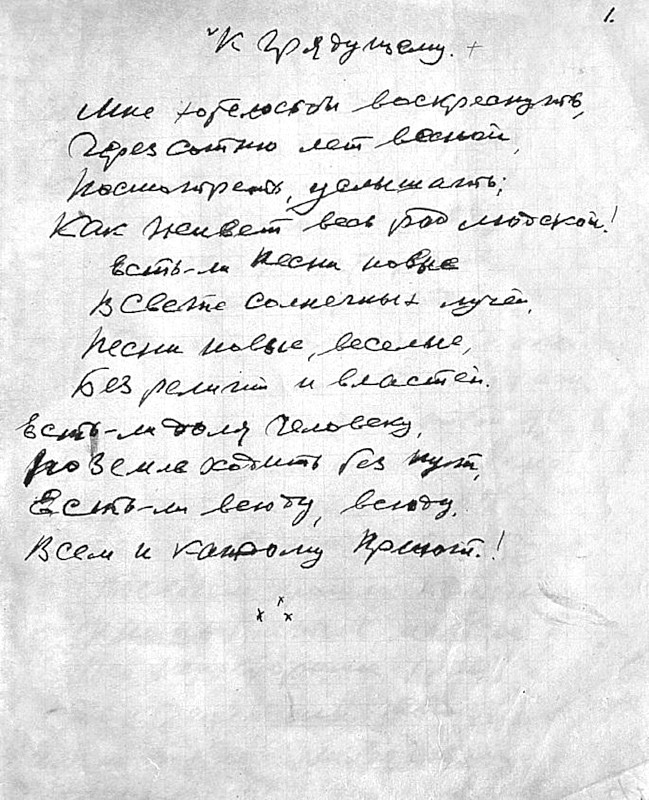 1.
"К Грядущему. +
Мне хотелостби воскреснуть,
Через сотню лет весной,
Посмотреть, услышать;
Как живет весь род людской!
Есть-ли песни новые
В свете солнечных лучей,
Песни новые, веселые,
Без религий и властей.
Есть-ли доля человеку,
По земле ходить без пут,
Есть-ли всюду, всюду,
Всем и каждому приют.!
x x x